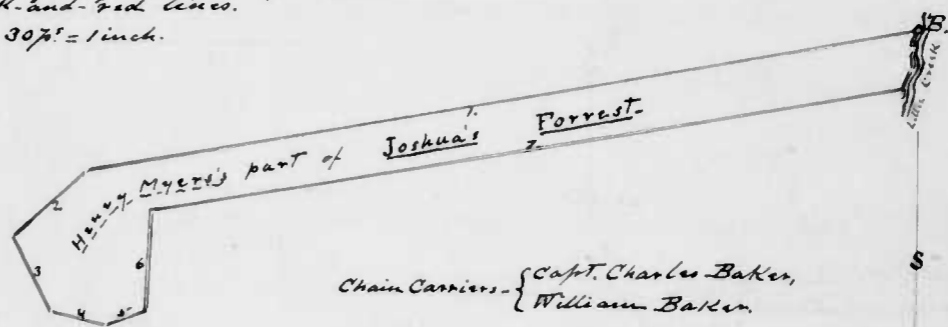 k-and-red lines.
30 ps = 1 inch.
B.
Little Creek
1.
Henry Myers's part of Joshua's Forrest-
7
2
3
6
4
5
Chain Carriers - { Capt. Charles Baker,
William Baker.
S